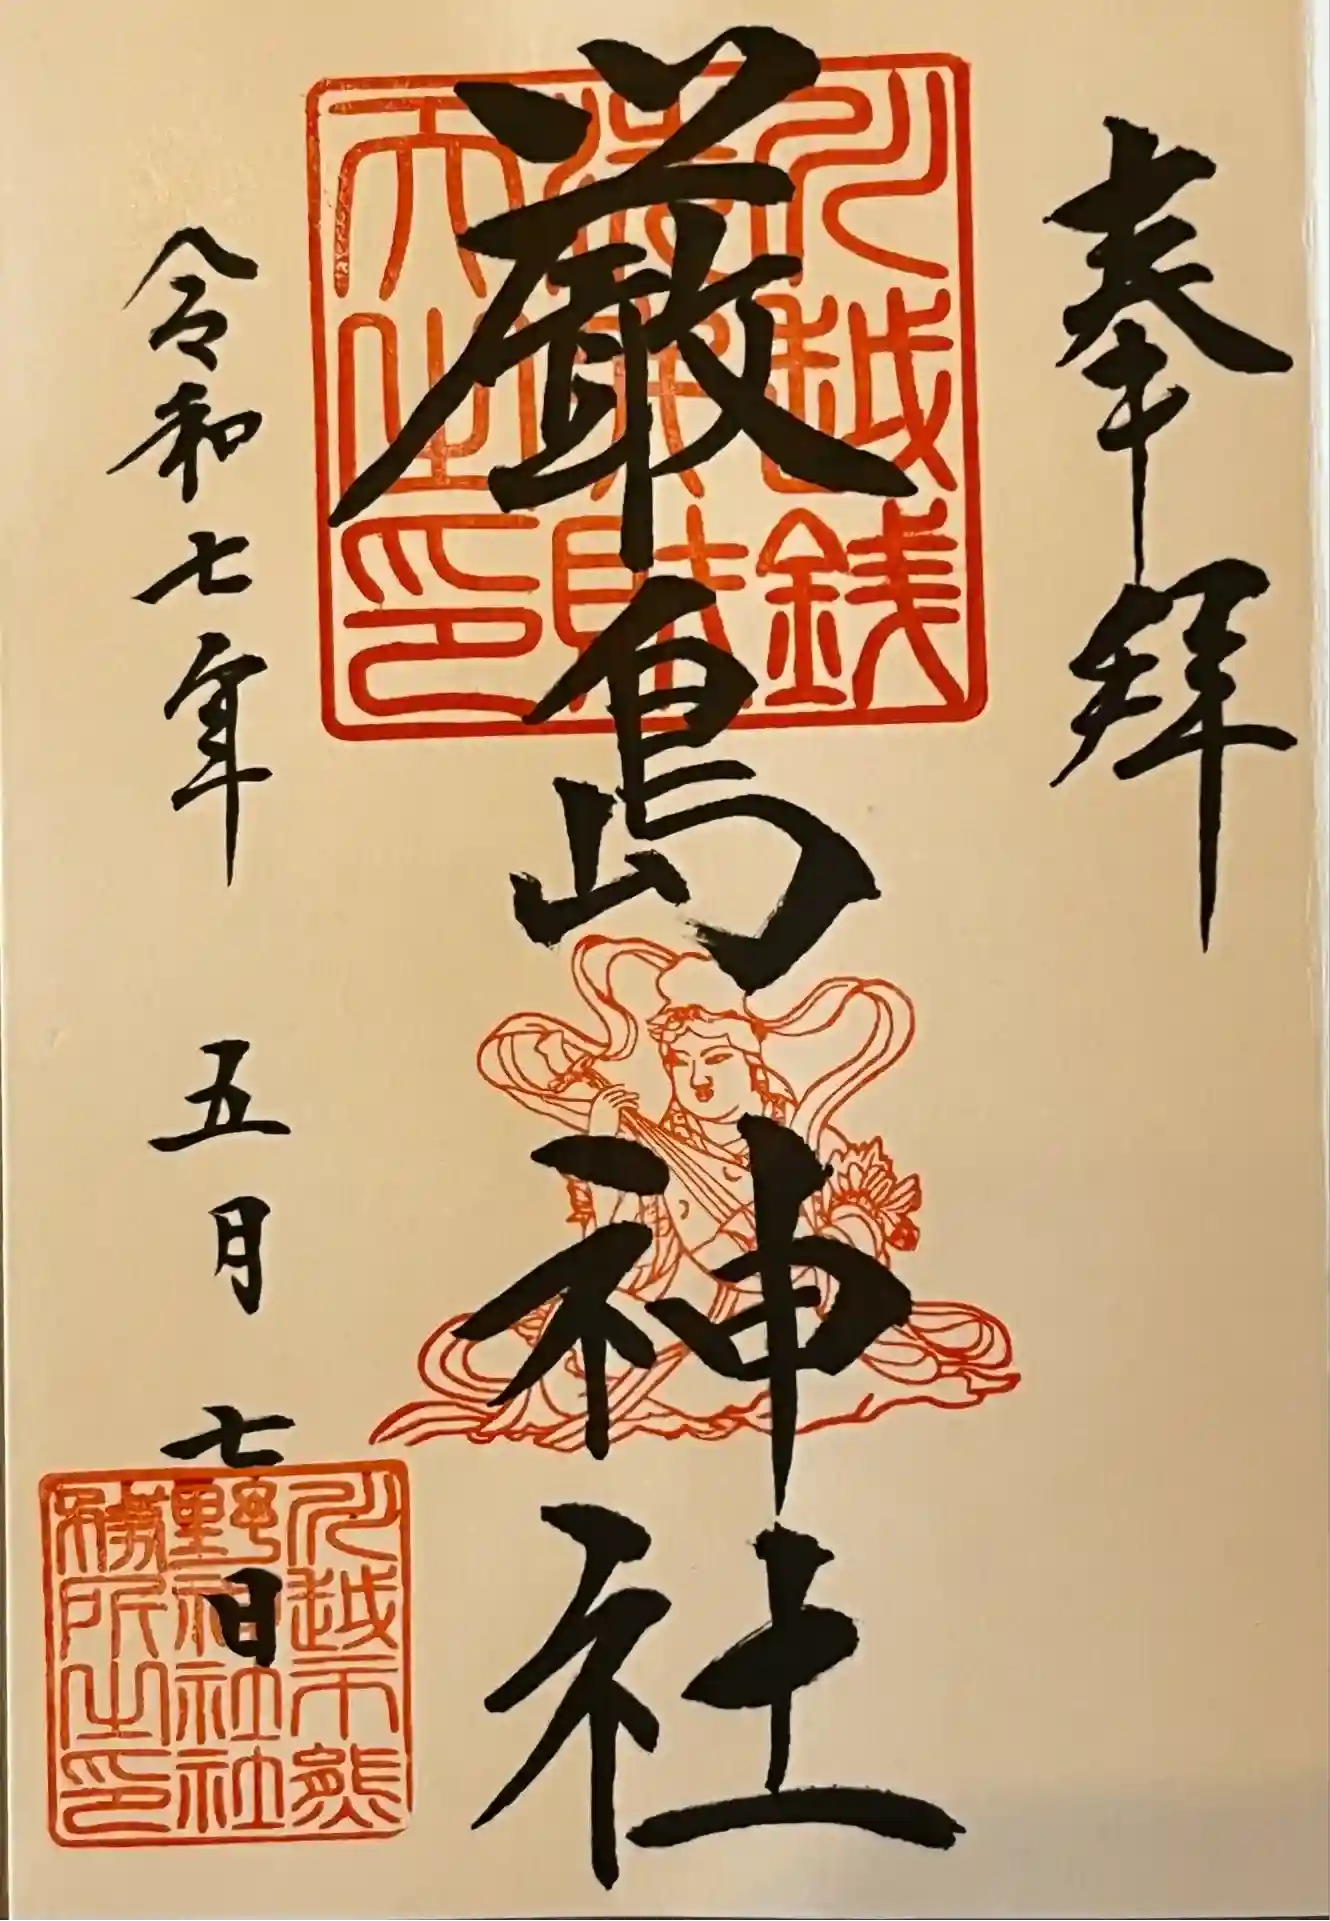 奉拝
厳島神社
川越銭
洗弁財
天之印
令和七年 五月 七日
川越市熊
野神社社
務所之印